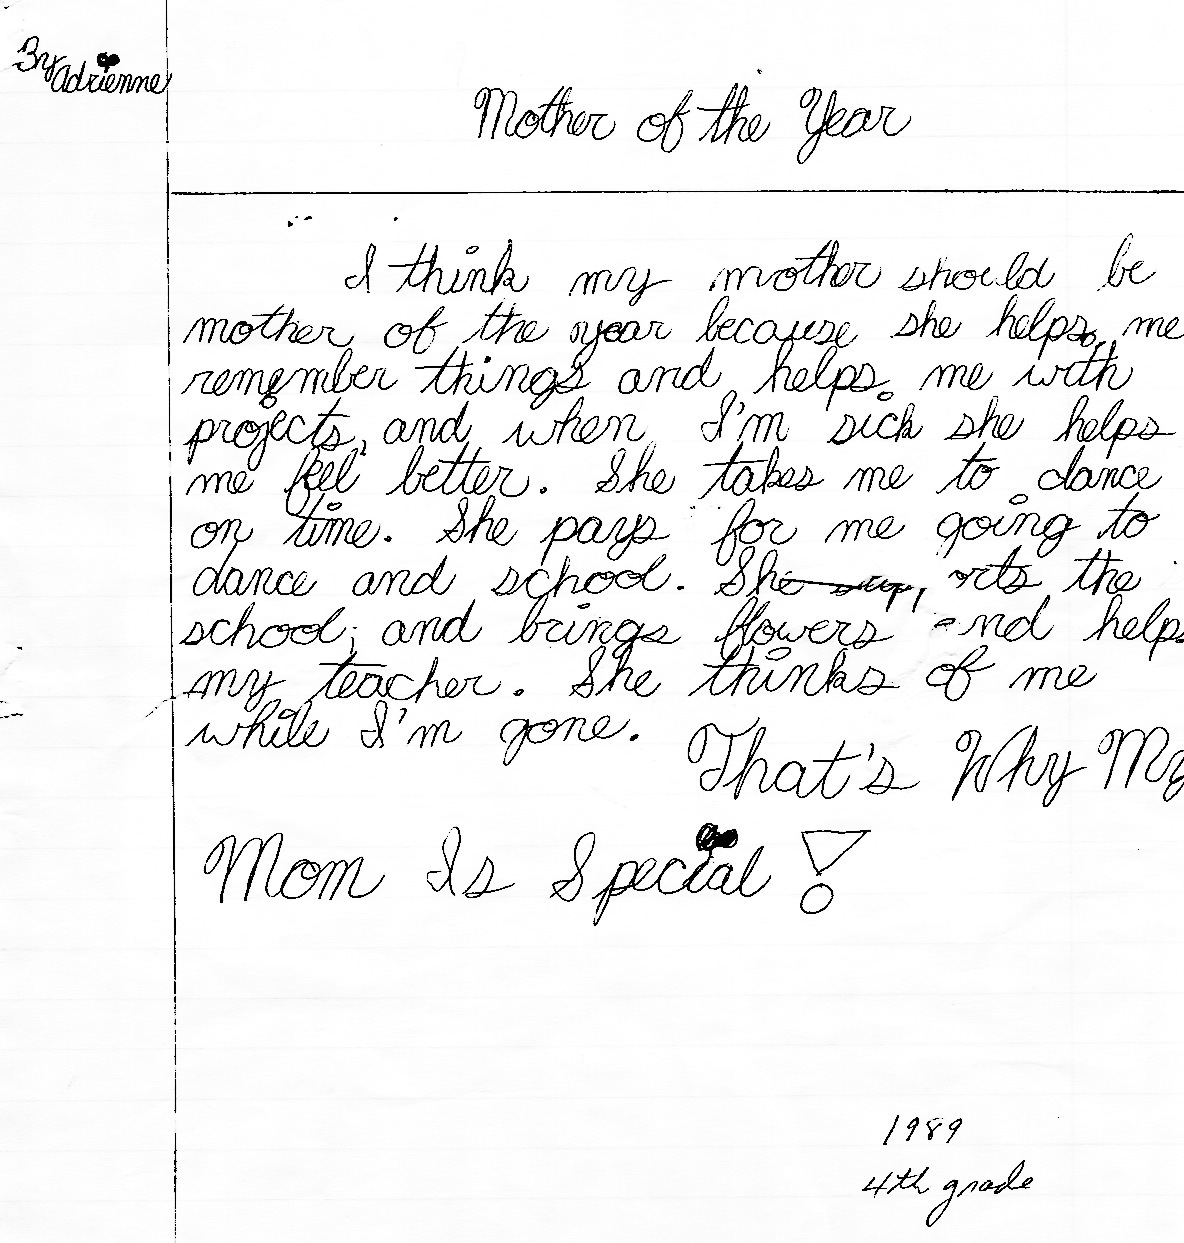 By Adrienne
Mother of the Year
I think my mother should be
mother of the year because she helps me
remember things and helps me with
projects, and when I'm sick she helps
me feel better. She takes me to dance
on time. She pays for me going to
dance and school. She the
school, and brings flowers and helps
my teacher. She thinks of me
while I'm gone.
That's Why My
Mom Is Special!
1989
4th grade